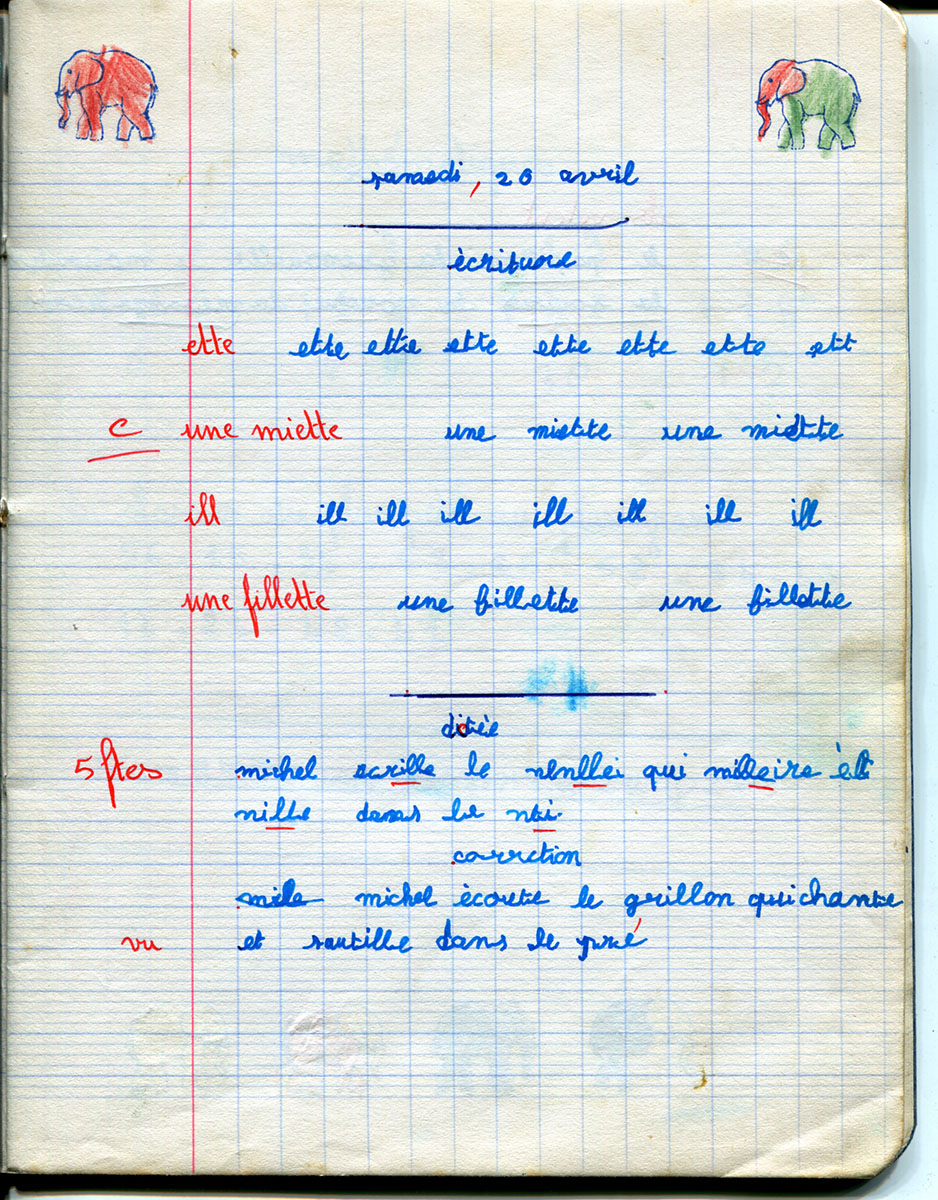 samedi, 20 avril
écriture
ette ette ette ette ette ette ette ett
c une miette une miette une miette
ill ill ill ill ill ill ill ill
une fillette une fillette une fillette
dictée
5 ftes michel ecrille le qui èt
nille dans le
correction
mile michel écoute le grillon qui chante
vu et sautille dans le pré